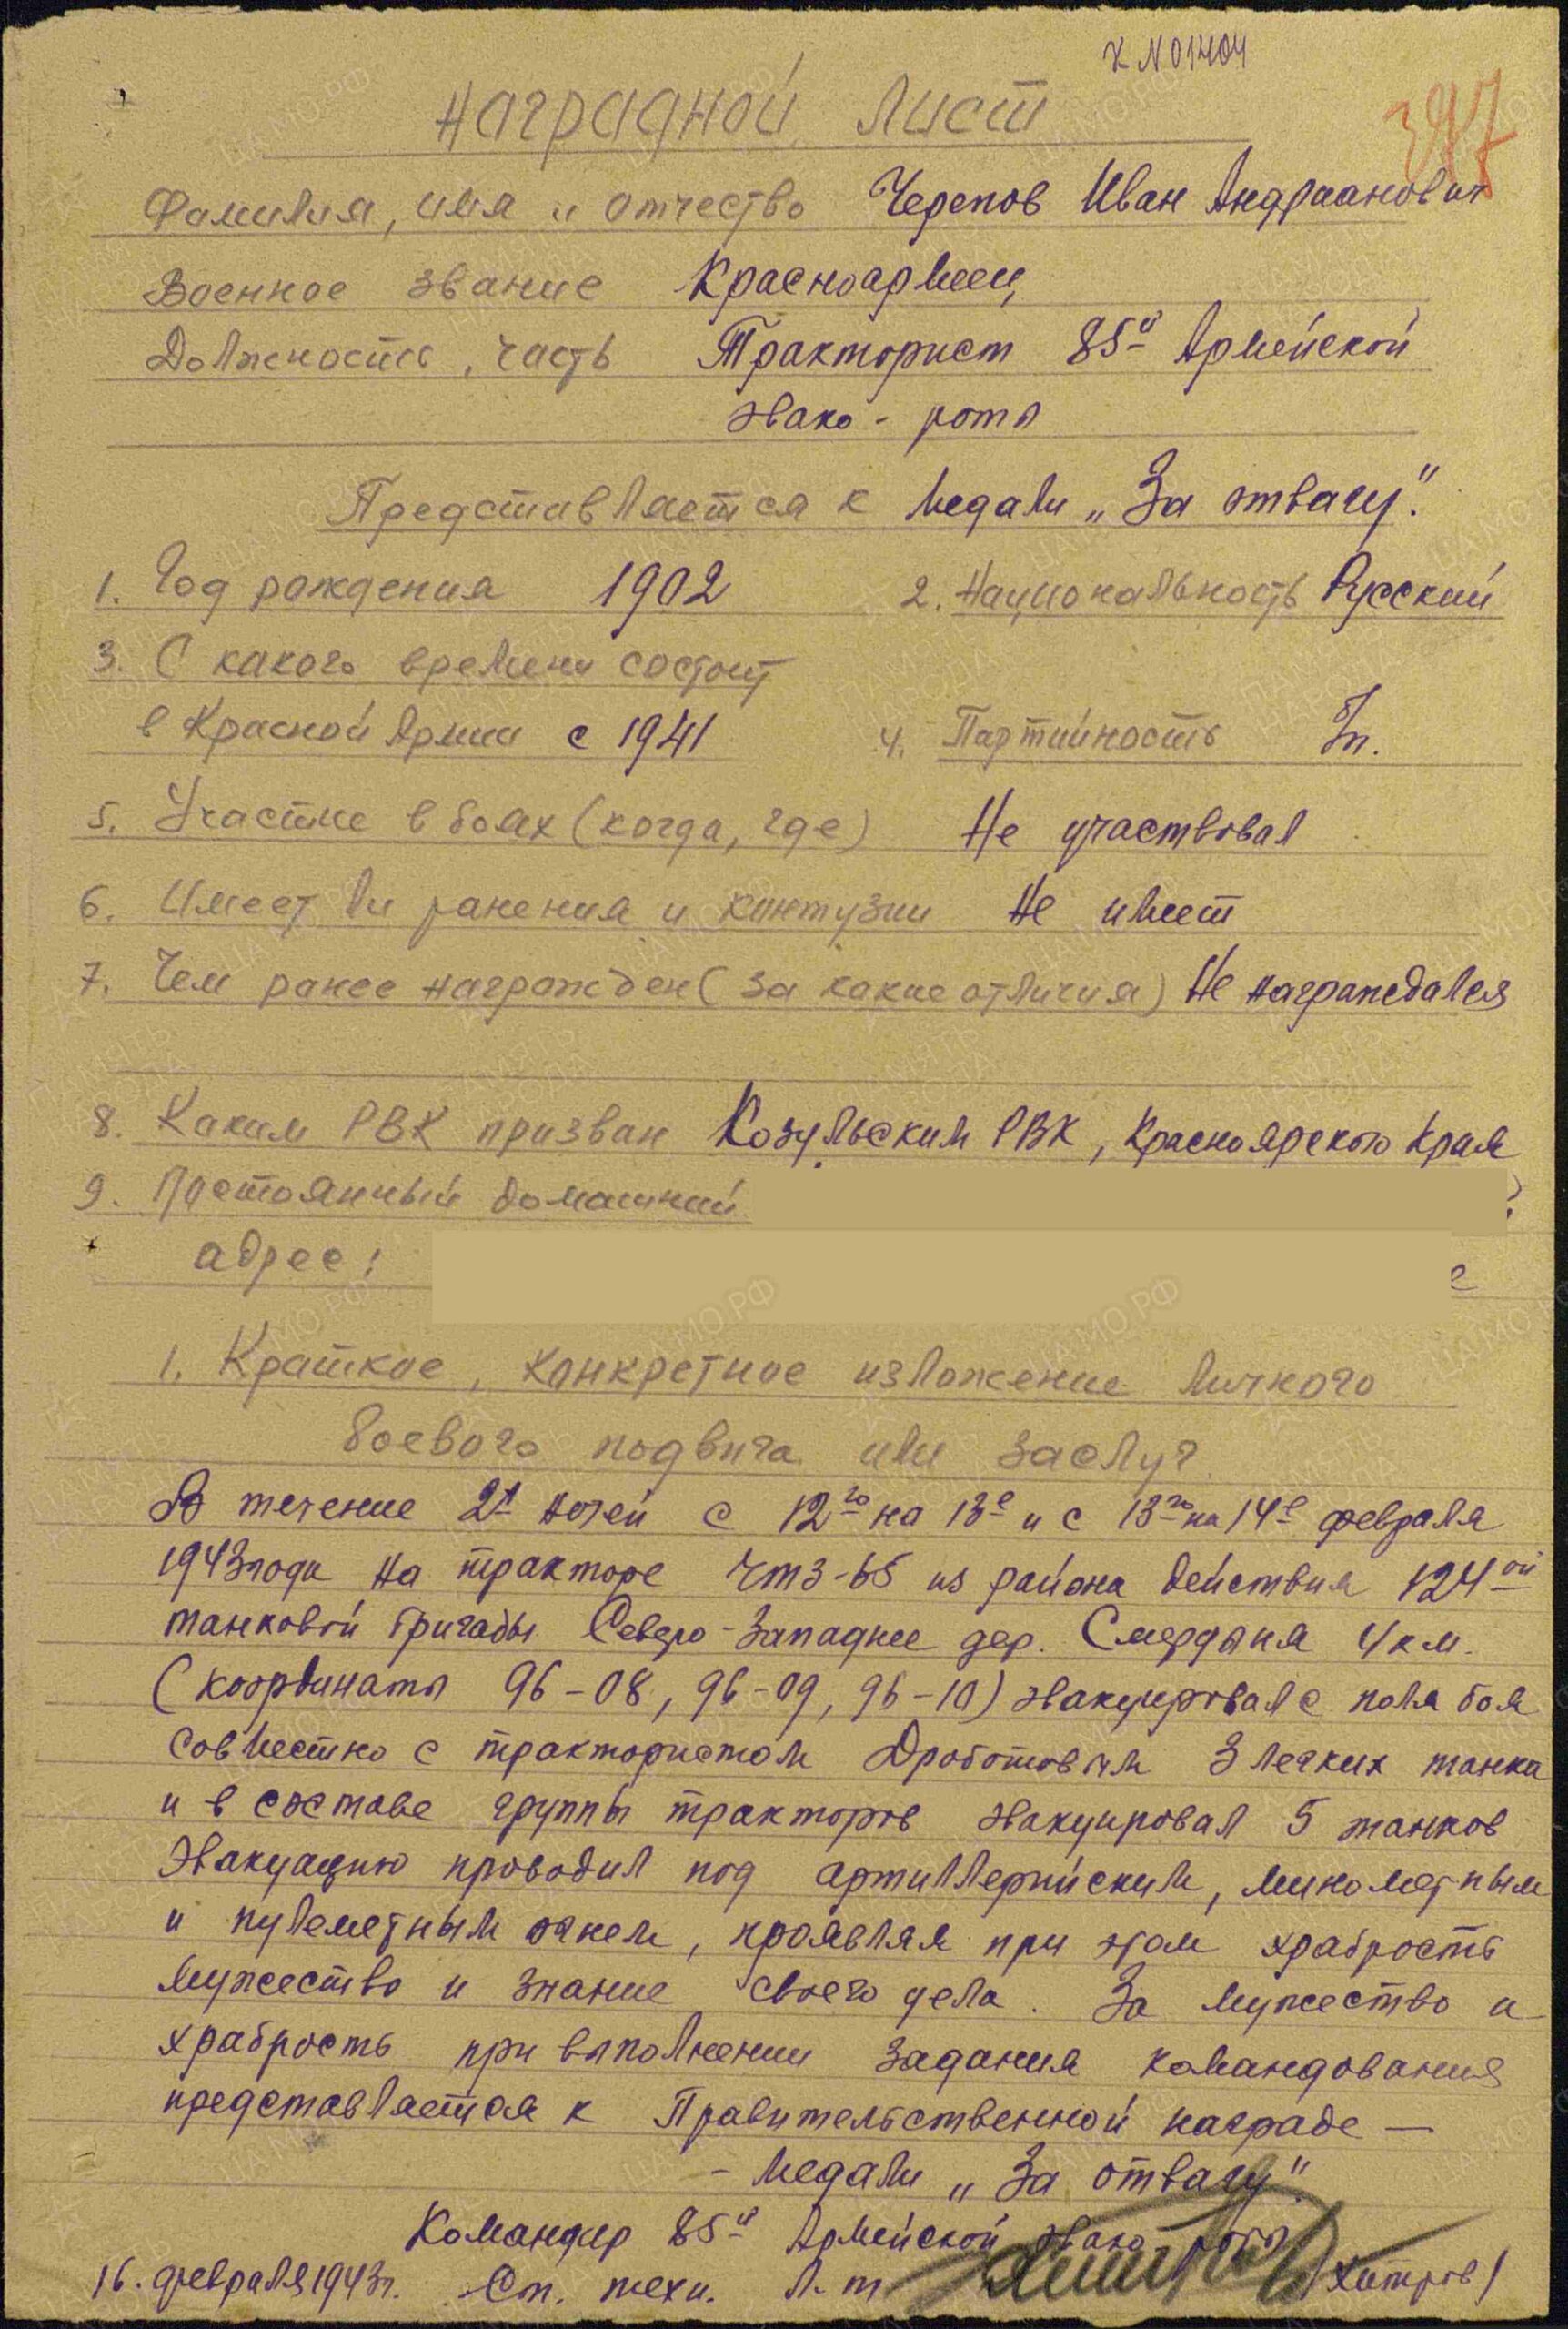 К N 01404
397
Наградной лист
Фамилия, имя и отчество Черепов Иван Андрианович
Военное звание Красноармеец
Должность, часть Тракторист 85й Армейской
эвако-роты
Представляется к медали „За отвагу".
1. Год рождения 1902 2. Национальность Русский
3. С какого времени состоит
в Красной Армии с 1941 4. Партийность б/п.
5. Участие в боях (когда, где) Не участвовал
6. Имеет ли ранения и контузии Не имеет
7. Чем ранее награжден (за какие отличия) Не награждался
8. Каким РВК призван Козульским РВК, Красноярского края
9. Постоянный домашний
адрес:
1. Краткое, конкретное изложение личного
боевого подвига или заслуг
В течение 2х ночей с 12го на 13е и с 13го на 14е февраля
1943 года на тракторе ЧТЗ-65 из района действия 124ой
танковой бригады Северо-Западнее дер. Смердыня 4 км.
(координаты 96-08, 96-09, 96-10) эвакуировал с поля боя
совместно с трактористом Дроботовым 3 легких танка
и в составе группы тракторов эвакуировал 5 танков
Эвакуацию проводил под артиллерийским, минометным
и пулеметным огнем, проявляя при этом храбрость
мужество и знание своего дела. За мужество и
храбрость при выполнении задания командования
представляется к Правительственной награде —
- медали „За отвагу".
Командир 85й Армейской эвако-роты
16. февраля 1943 г. Ст. техн. л-т /Хитров/